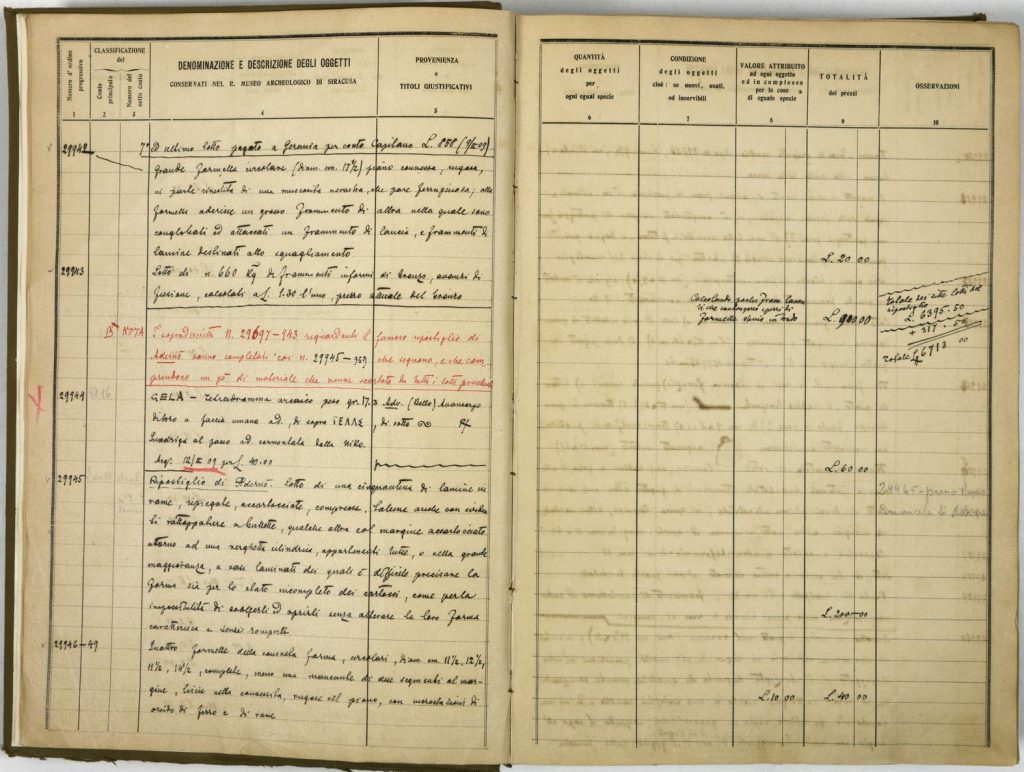 Numero d'ordine progressivo
CLASSIFICAZIONE
del
Conto principale
Numero del sotto conto
DENOMINAZIONE E DESCRIZIONE DEGLI OGGETTI
CONSERVATI NEL R. MUSEO ARCHEOLOGICO DI SIRACUSA
PROVENIENZA
e
TITOLI GIUSTIFICATIVI
1 2 3 4 5
29942 7° ed ultimo lotto pagato a per conto Capitano L. 858 (9/III 09)
Grande formella circolare (diam. cm. 17½) piano convessa, rugosa,
in parte rivestita di una nerastra, che pare ferruginosa; alla
formella aderisce un grosso frammento di altra nella quale sono
conglobati ed attaccati un frammento di lancia, e frammenti di
lamine destinati allo squagliamento
29943 Lotto di n. 660 Kg di frammenti informi di bronzo, avanzi di
fusione, calcolati a £. 1.30 l'uno, prezzo attuale del bronzo
NOTA I sopradescritti n. 29697-943 riguardanti il famoso ripostiglio di
Adernò vanno completati coi n. 29945-959 che seguono, e che com
prendono un pò di materiale che venne scartato da tutti i lotti precedenti
29944 GELA - Tetradramma arcaico peso gr. 17.3 Adv. (Bello) Avancorpo
di toro a faccia umana ad., di sopra ΓΕΛΑΣ, di sotto
Quadriga al passo ad. sormontata dalla Nike
Acq. 12/III 09 per £. 40.00
29945 Ripostiglio di Adernò. Lotto di una cinquantina di lamine in
rame, ripiegate, accartocciate, compresse, talune anche con
ti rattoppature a bullette, qualche altra col margine accartocciato
attorno ad una verghetta cilindrica, appartenenti tutte, o nella grande
maggioranza, a vasi laminati dei quali è difficile precisare la
forma sia per lo stato incompleto dei cartocci, come per la
impossibilità di svolgerli ed aprirli senza alterare la loro forma
caratteristica e senza romperli
29946-49 Quattro formelle della consueta forma, circolari, diam. cm. 11½, 12½,
11½, 14½, complete, meno una mancante di due segmenti al mar-
gine, liscie nella convessità, rugose nel piano, con incrostazioni di
ossido di ferro e di rame
QUANTITÀ
degli oggetti
per
ogni egual specie
CONDIZIONE
degli oggetti
cioè: se nuovi, usati,
od inservibili
VALORE ATTRIBUITO
ad ogni oggetto
ed in complesso
per le cose
di eguale specie
TOTALITÀ
dei prezzi
OSSERVAZIONI
6 7 8 9 10
L. 20 00
Calcolando
che contengono
formelle
L. 900 00
Totale dei sette lotti del
ripostiglio
L. 6395.50
+ 317.50
Totale L. 6713.00
L. 60 00
29945 -
L. 200 00
L. 10 00 L. 40 00